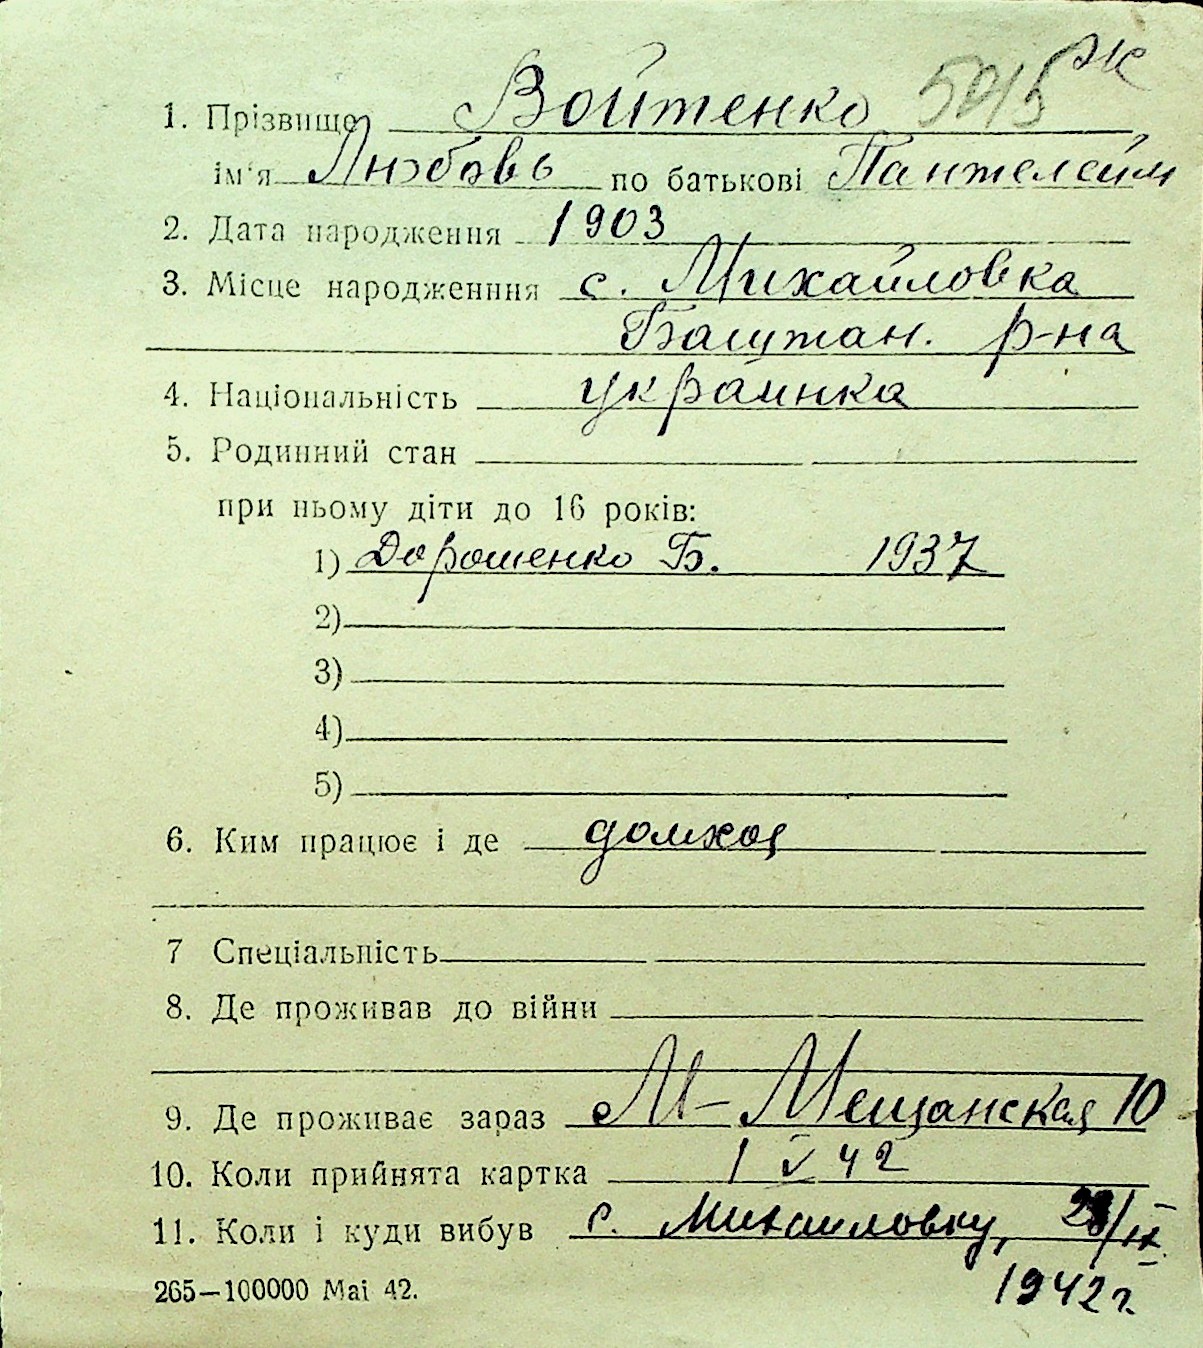 5045 эк
1. Прізвище Войтенко
ім'я Любовь по батькові Пантелейм
2. Дата народження 1903
3. Місце народженння с. Михайловка
Баштан. р-на
4. Національність украинка
5. Родинний стан
при ньому діти до 16 років:
1) Дорошенко Б. 1937
2)
3)
4)
5)
6. Ким працює і де домхоз
7 Спеціальність
8. Де проживав до війни
9. Де проживає зараз М-Мещанская 10
10. Коли прийнята картка 1 V 42
11. Коли і куди вибув с. Михайловку, 28/IX
1942 г.
265—100000 Mai 42.